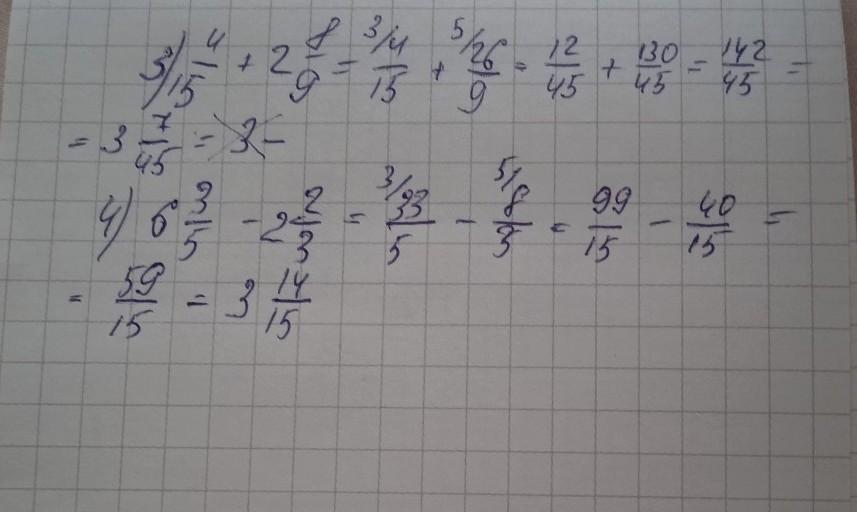 3) 4/15 + 2 8/9 = 3/ 4/15 + 5/ 26/9 = 12/45 + 130/45 = 142/45 =
= 3 7/45 = 3 -
4) 6 3/5 - 2 2/3 = 3/ 33/5 - 5/ 8/3 = 99/15 - 40/15 =
= 59/15 = 3 14/15